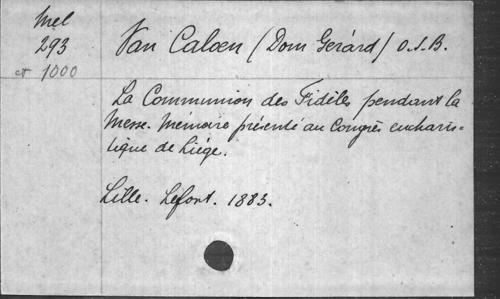 Mel
293
et 1000
Van Caloen (Dom Gérard) O.S.B.
La Communion des Fidèles pendant la
Messe. Mémoire présenté au Congrès eucharis=
tique de Liége.
Lille. Lefort. 1883.